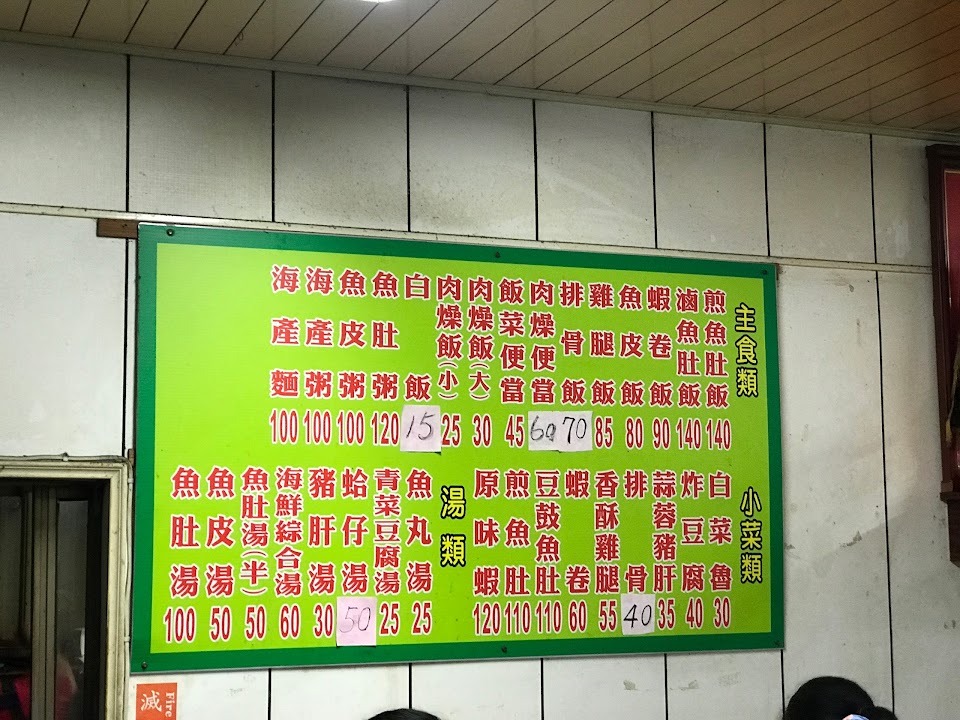 主食類
煎魚肚飯 140
滷魚肚飯 140
蝦卷飯 90
魚皮飯 80
雞腿飯 85
排骨飯 70
肉燥便當 60
飯菜便當 45
肉燥飯(大) 30
肉燥飯(小) 25
白飯 15
魚肚粥 120
魚皮粥 100
海產粥 100
海產麵 100
小菜類
白菜魯 30
炸豆腐 40
蒜蓉豬肝 35
排骨 40
香酥雞腿 55
蝦卷 60
豆鼓魚肚 110
煎魚肚 110
原味蝦 120
湯類
魚丸湯 25
青菜豆腐湯 25
蛤仔湯 50
豬肝湯 30
海鮮綜合湯 60
魚肚湯(半) 50
魚皮湯 50
魚肚湯 100
滅
Fire